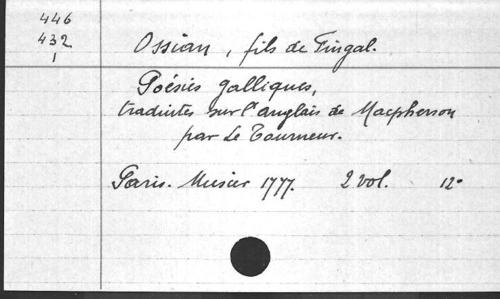 446
432
1
Ossian, fils de Fingal.
Poésies galliques,
traduites sur l'anglais de Macpherson
par Le Tourneur.
Paris. Musier 1777. 2 vol. 12°